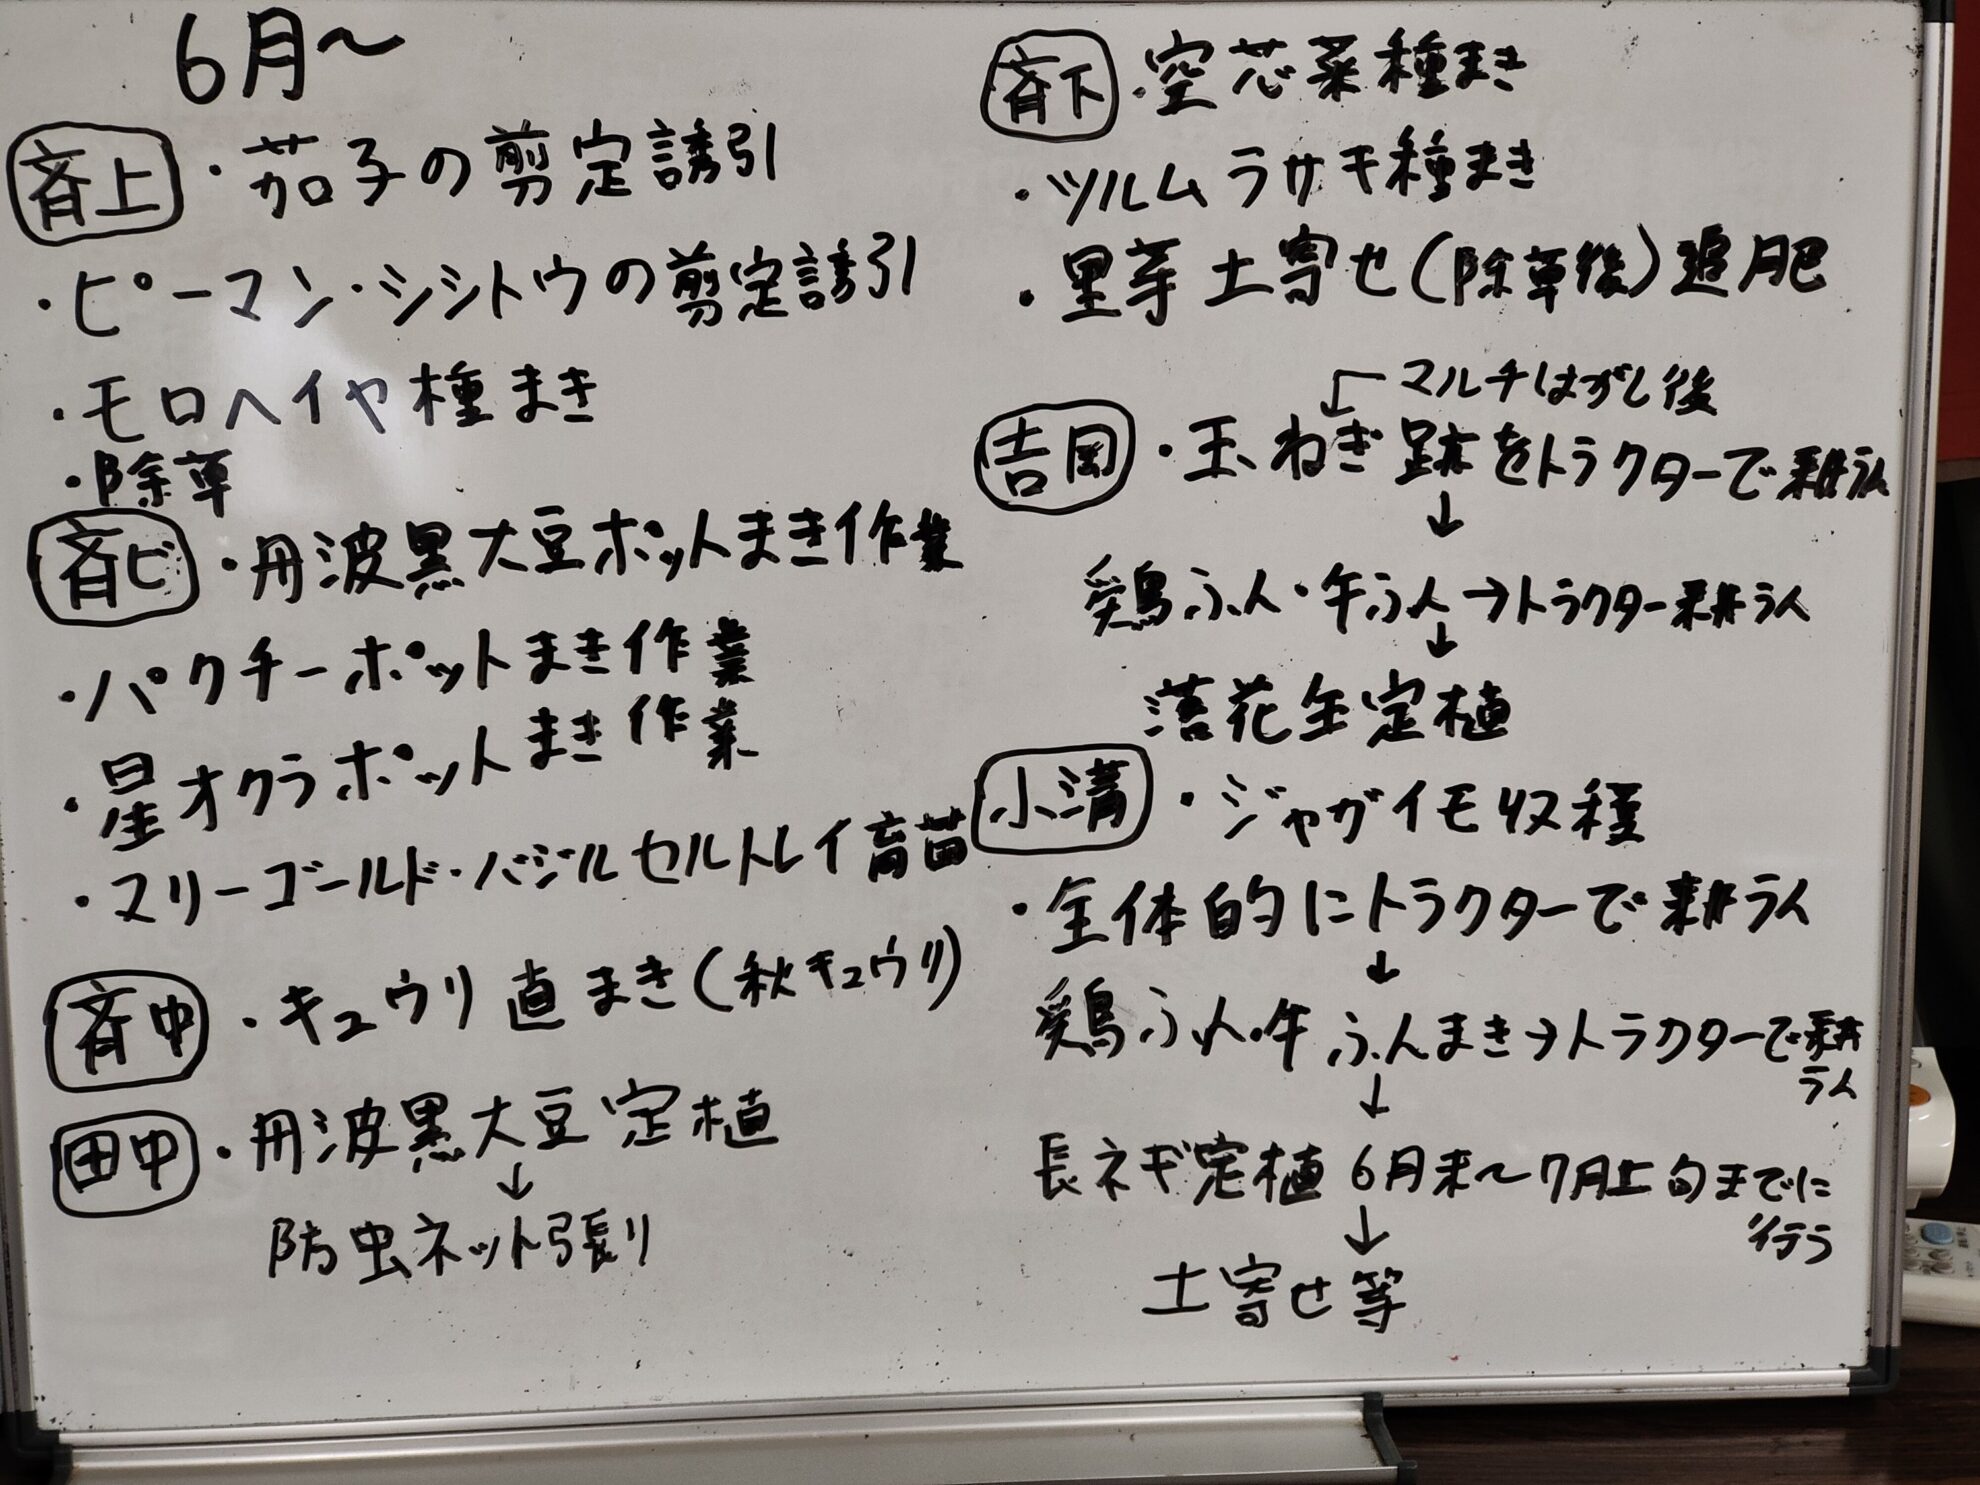 6月〜
斉上 ・茄子の剪定誘引
・ピーマン・シシトウの剪定誘引
・モロヘイヤ種まき
・除草
斉ビ ・丹波黒大豆ポットまき作業
・パクチーポットまき作業
・星オクラポットまき作業
・マリーゴールド・バジルセルトレイ育苗
斉中 ・キュウリ直まき(秋キュウリ)
田中 ・丹波黒大豆定植
↓
防虫ネット張り
斉下 ・空芯菜種まき
・ツルムラサキ種まき
・里芋土寄せ(除草後)追肥
←マルチはがし後
吉岡 ・玉ねぎ跡をトラクターで耕うん
↓
鶏ふん・牛ふん→トラクター耕うん
↓
落花生定植
小溝 ・ジャガイモ収穫
・全体的にトラクターで耕うん
↓
鶏ふん・牛ふんまき→トラクターで耕
うん
↓
長ネギ定植 6月末〜7月上旬までに
行う
↓
土寄せ等